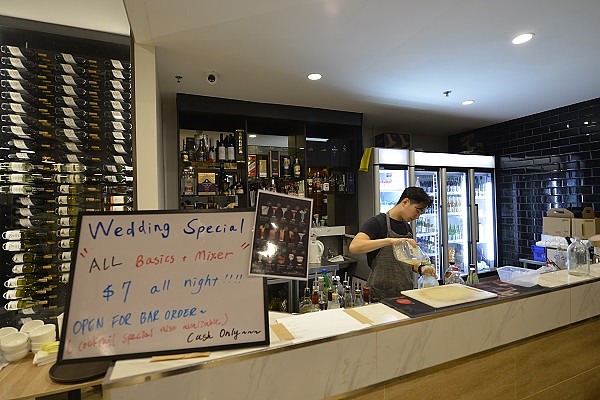 Wedding Special
"ALL Basics + Mixer
$7 all night!!!"
OPEN FOR BAR ORDER~
(cocktail special also available.)
Cash Only~~~